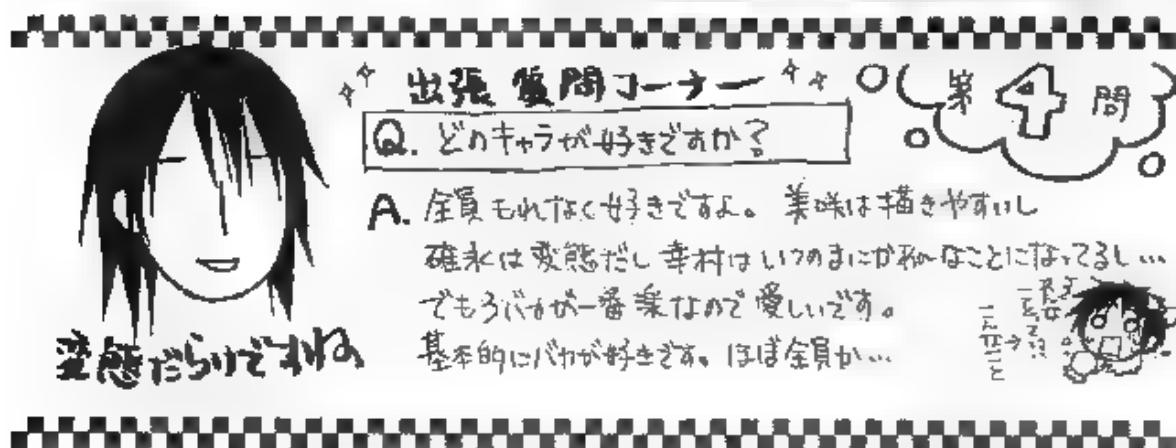 出張 質問コーナー
第4問
Q. どのキャラが好きですか?
A. 全員もれなく好きですよ。美咲は描きやすいし
碓氷は変態だし幸村はいつのまにかあんなことになってるし…
でも3バカが一番楽なので愛しいです。
基本的にバカが好きです。ほぼ全員か…
変態だらけですね
こんなこと→